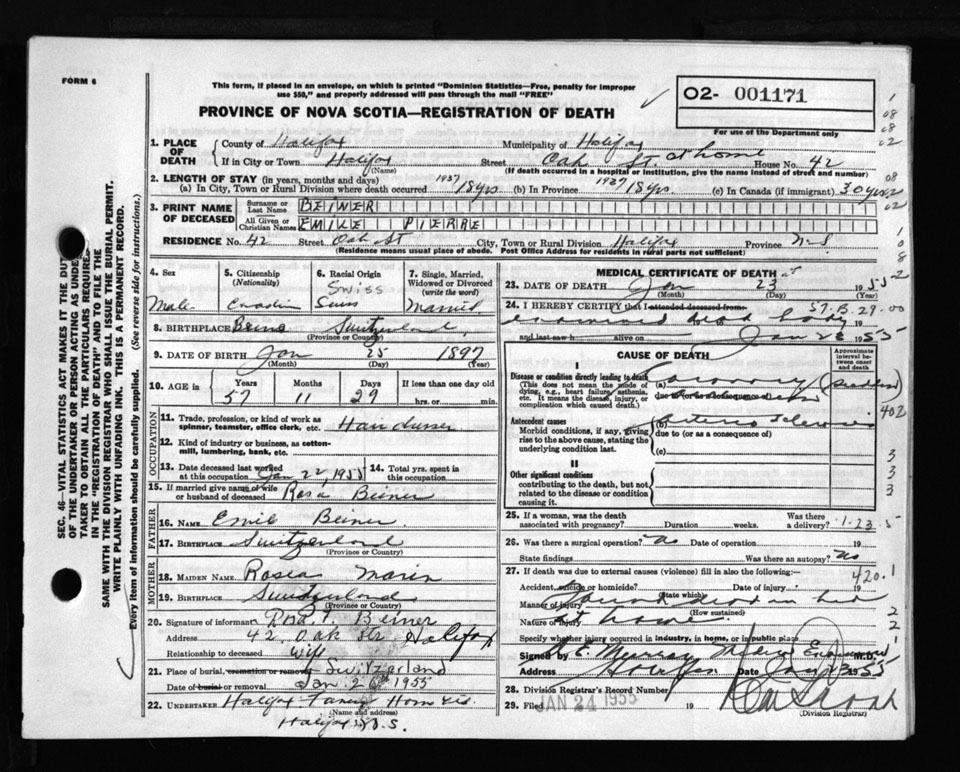 FORM 6
This form, if placed in an envelope, on which is printed "Dominion Statistics—Free, penalty for improper
use $50," and properly addressed will pass through the mail "FREE"
PROVINCE OF NOVA SCOTIA—REGISTRATION OF DEATH
O2- 001171
For use of the Department only
SEC. 46—VITAL STATISTICS ACT MAKES IT THE DUTY
OF THE UNDERTAKER OR PERSON ACTING AS UNDER-
TAKER TO OBTAIN ALL THE PARTICULARS REQUIRED
IN THE "REGISTRATION OF DEATH" AND TO FILE THE
SAME WITH THE DIVISION REGISTRAR WHO SHALL ISSUE THE BURIAL PERMIT.
WRITE PLAINLY WITH UNFADING INK. THIS IS A PERMANENT RECORD.
Every item of information should be carefully supplied. (See reverse side for instructions.)
1. PLACE OF DEATH County of Halifax Municipality of Halifax
If in City or Town Halifax (Name) Street Oak St. at home House No. 42
(If death occurred in a hospital or institution, give the name instead of street and number)
2. LENGTH OF STAY (in years, months and days)
(a) In City, Town or Rural Division where death occurred 1937 18 yrs. (b) In Province 1937 18 yrs. (c) In Canada (if immigrant) 30 yrs
3. PRINT NAME OF DECEASED Surname or Last Name BEINER
All Given or Christian Names EMILE PIERRE
RESIDENCE No. 42 Street Oak St City, Town or Rural Division Halifax Province N.S
(Residence means usual place of abode. Post Office Address for residents in rural parts not sufficient)
4. Sex Male
5. Citizenship (Nationality)
6. Racial Origin Swiss Swiss
7. Single, Married, Widowed or Divorced (write the word) Married
8. BIRTHPLACE Switzerland (Province or Country)
9. DATE OF BIRTH Jan (Month) 25 (Day) 1897 (Year)
10. AGE in Years 57 Months 11 Days 29 If less than one day old hrs. or min.
OCCUPATION
11. Trade, profession, or kind of work as spinner, teamster, office clerk, etc.
12. Kind of industry or business, as cotton-mill, lumbering, bank, etc.
13. Date deceased last worked at this occupation Jan 22, 1955
14. Total yrs. spent in this occupation
15. If married give name of wife or husband of deceased Rosa Beiner
FATHER
16. NAME Emil Beiner
17. BIRTHPLACE Switzerland (Province or Country)
MOTHER
18. MAIDEN NAME
19. BIRTHPLACE Switzerland (Province or Country)
20. Signature of informant Beiner
Address 42, Oak Str Halifax
Relationship to deceased Wife
21. Place of burial, cremation or removal Switzerland
Date of burial or removal Jan. 26 1955
22. UNDERTAKER Halifax
(Name and address)
Halifax N.S.
MEDICAL CERTIFICATE OF DEATH
23. DATE OF DEATH Jan (Month) 23 (Day) 1955 (Year)
24. I HEREBY CERTIFY that I attended deceased from
57.B.29.00
examined dead body
and last saw h alive on Jan 23 1955
CAUSE OF DEATH
Approximate interval between onset and death
I
Disease or condition directly leading to death
(This does not mean the mode of dying, e.g., heart failure, asthenia, etc. It means the disease, injury, or complication which caused death.)
(a) Coronary
due to (or as a consequence of)
Antecedent causes
Morbid conditions, if any, giving rise to the above cause, stating the underlying condition last.
(b)
due to (or as a consequence of)
(c)
402
II
Other significant conditions
contributing to the death, but not related to the disease or condition causing it.
3
3
3
25. If a woman, was the death associated with pregnancy? Duration weeks. Was there a delivery?
26. Was there a surgical operation? No Date of operation 19
State findings Was there an autopsy? No
27. If death was due to external causes (violence) fill in also the following:—
420.1
Accident, suicide or homicide? (State which) Date of injury 19
Manner of injury found dead in bed
(How sustained)
Nature of injury at home
Specify whether injury occurred in industry, in home, or in public place
Signed by Murray Medical Examiner M.D.
Address Halifax Date Jan 23 1955
28. Division Registrar's Record Number
29. Filed JAN 24 1955 19
(Division Registrar)